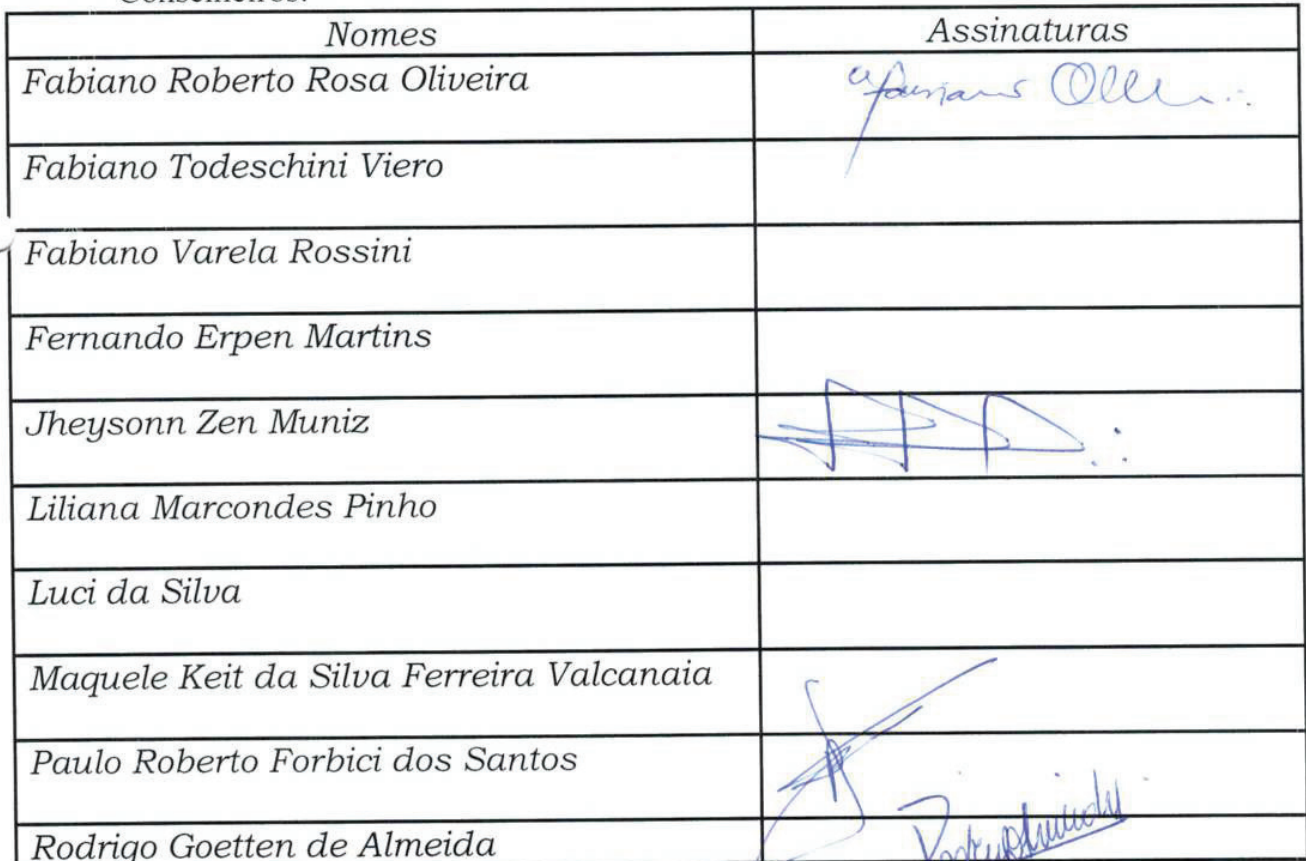 Nomes Assinaturas
Fabiano Roberto Rosa Oliveira
Fabiano Todeschini Viero
Fabiano Varela Rossini
Fernando Erpen Martins
Jheysonn Zen Muniz
Liliana Marcondes Pinho
Luci da Silva
Maquele Keit da Silva Ferreira Valcanaia
Paulo Roberto Forbici dos Santos
Rodrigo Goetten de Almeida